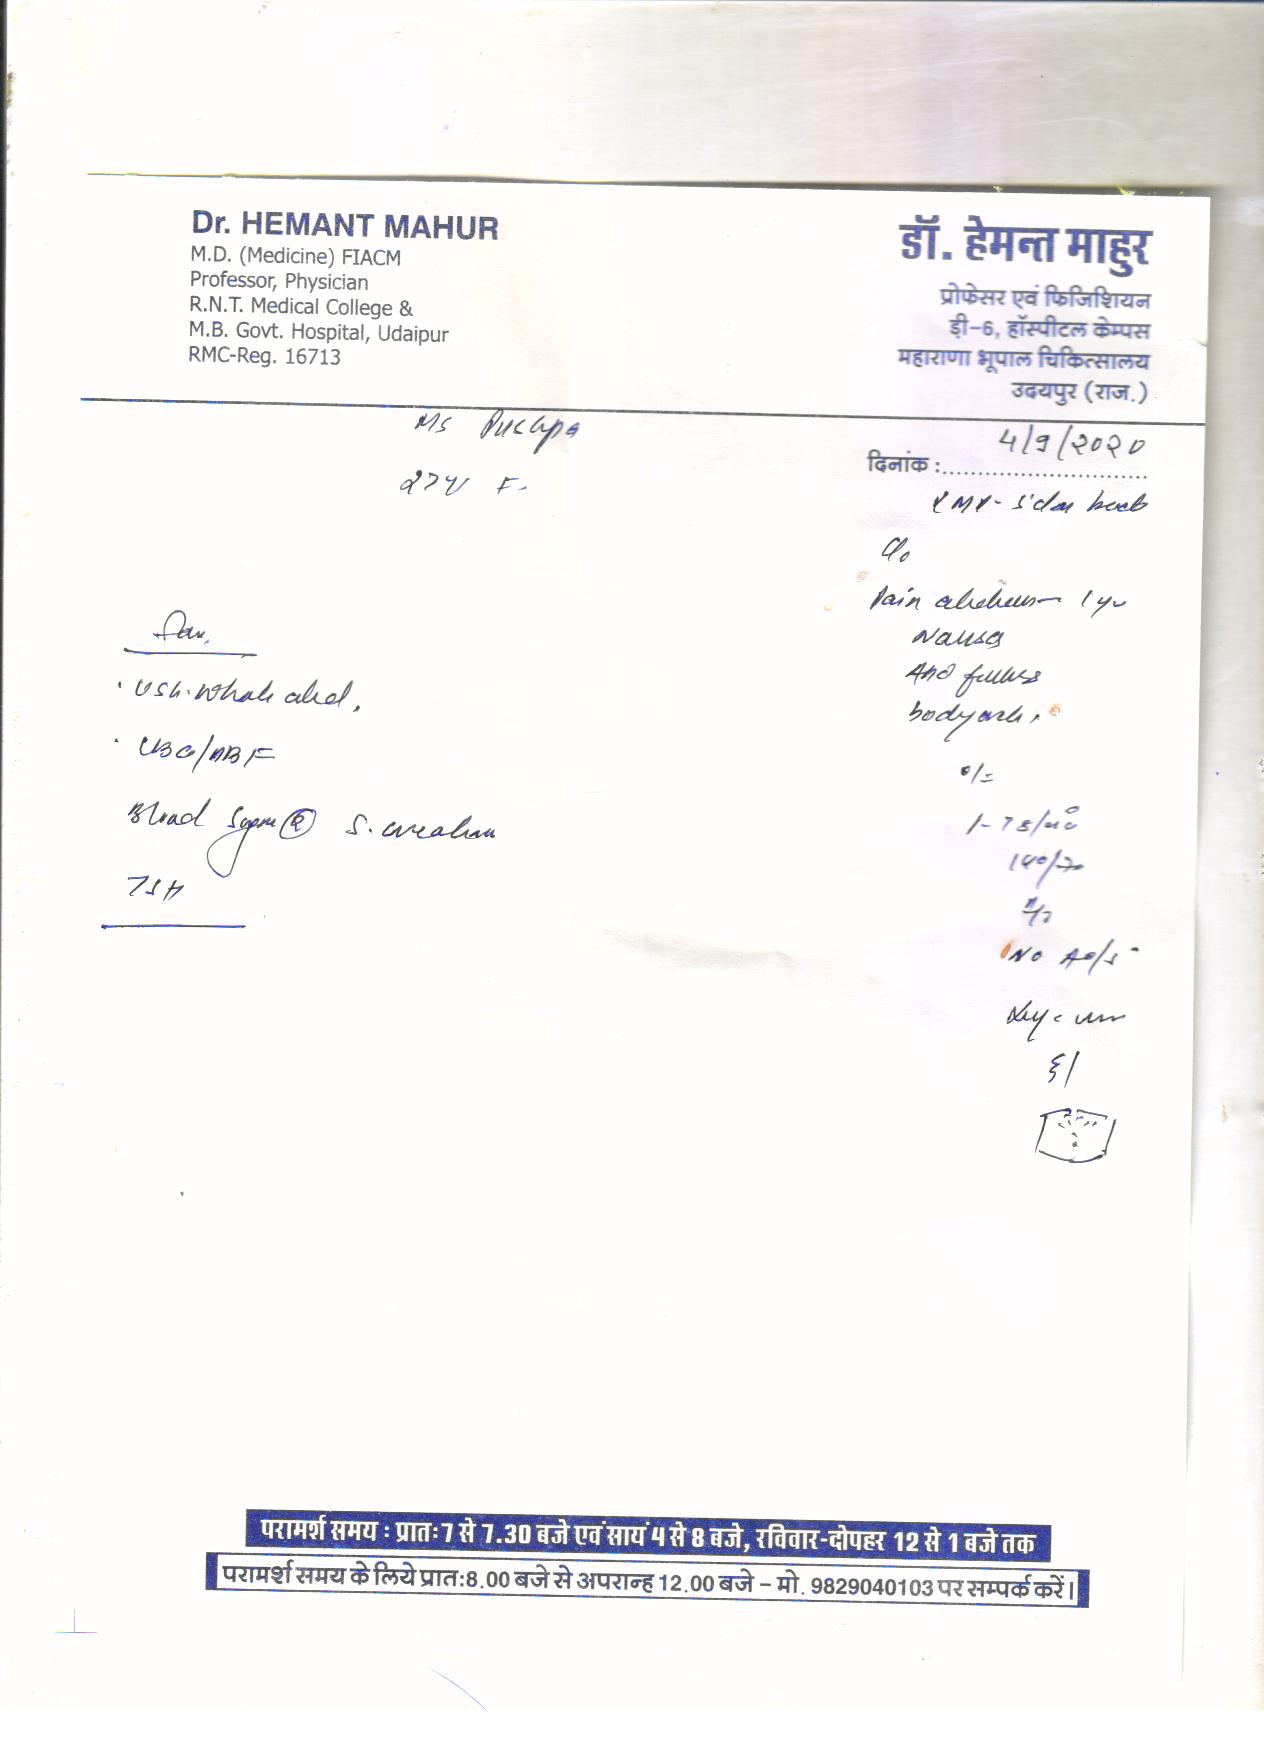 Dr. HEMANT MAHUR
M.D. (Medicine) FIACM
Professor, Physician
R.N.T. Medical College &
M.B. Govt. Hospital, Udaipur
RMC-Reg. 16713
डॉ. हेमन्त माहुर
प्रोफेसर एवं फिजिशियन
डी-6, हॉस्पीटल केम्पस
महाराणा भूपाल चिकित्सालय
उदयपुर (राज.)
Ms Pushpa
27y F
दिनांक : 4/9/2020
LMP - 5 day back
C/o
Pain abdomen - 1 yr
Nausea
And fullness
bodyache
O/E
140/70
NO
USG. Whole abd.
CBC/
Blood Sugar (R) S. creatinine
TSH
परामर्श समय : प्रातः7 से 7.30 बजे एवं सायं 4 से 8 बजे, रविवार-दोपहर 12 से 1 बजे तक
परामर्श समय के लिये प्रात:8.00 बजे से अपरान्ह 12.00 बजे – मो. 9829040103 पर सम्पर्क करें।